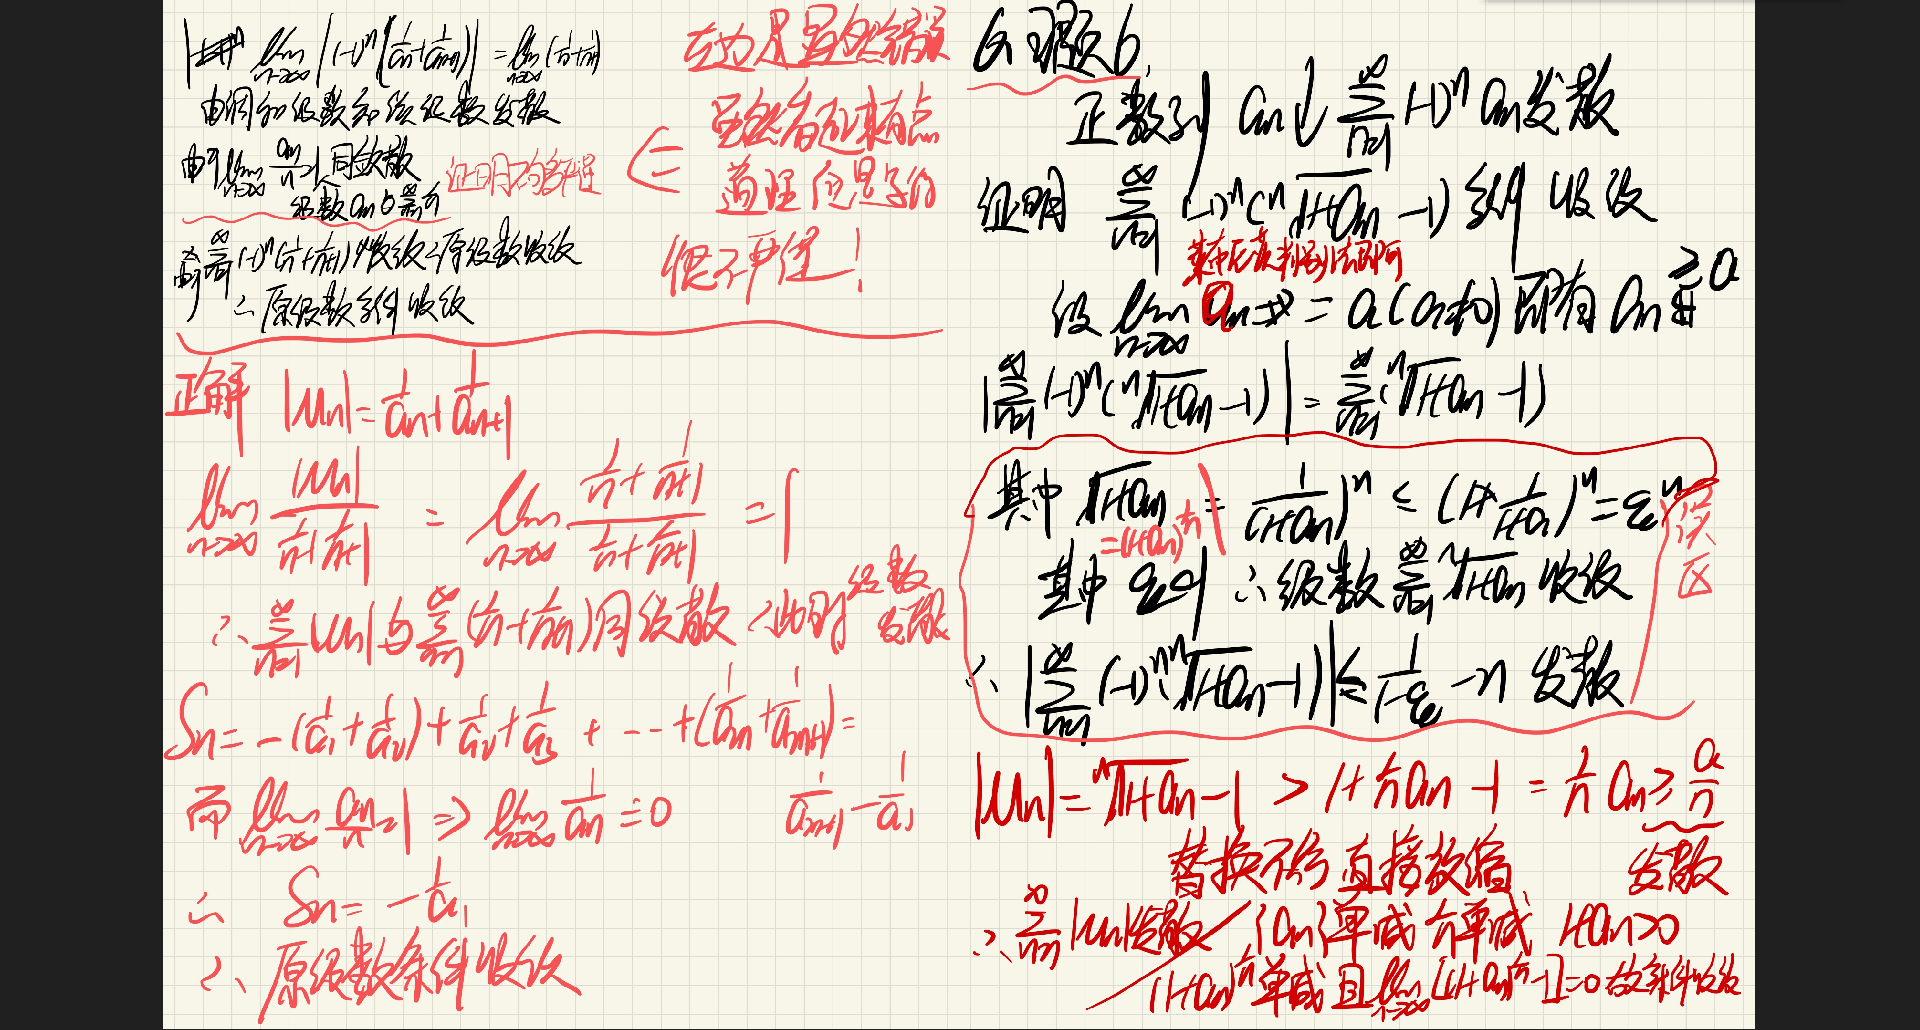 lim n→∞ |(-1)^n (1/an + 1/an+1)| = lim n→∞ (1/n + 1/n+1)
由调和级数知该级数发散
由于 lim n→∞ an/n = 1 同敛散
证明不够严谨
级数
∑ n=1 ∞ (-1)^n (1/n + 1/n+1) 收敛 ∴原级数收敛
∴原级数条件收敛
左边是显然错误
虽然看起来有点
道理但是
很不严谨!
正解 |un| = 1/an + 1/an+1
lim n→∞ |un| / (1/n + 1/n+1) = lim n→∞ (1/n + 1/n+1) / (1/n + 1/n+1) = 1
∴ ∑ n=1 ∞ |un| 与 ∑ n=1 ∞ (1/n + 1/n+1) 同敛散 ∴此时级数发散
Sn = -(1/a1 + 1/a2) + 1/a2 + 1/a3 + --- + (1/an + 1/an+1) =
而 lim n→∞ an/n = 1 ⇒ lim n→∞ 1/an = 0
1/an+1 - 1/a1
∴ Sn = -1/a1
∴ 原级数条件收敛
例题6
正数列 an↓ ∑ n=1 ∞ (-1)^n an 发散
证明 ∑ n=1 ∞ (-1)^n (n√1+an - 1) 条件收敛
莱布尼茨判别法即可
设 lim n→∞ an = a (a≠0) 即有 an ≥ a
|∑ n=1 ∞ (-1)^n (n√1+an - 1)| = ∑ n=1 ∞ (n√1+an - 1)
其中 √1+an = (1/1+an)^n ≤ (1/1+a)^n = q^n
=(1+an)^1/n
误区
其中 q<1 ∴级数 ∑ n=1 ∞ n√1+an 收敛
∴ |∑ n=1 ∞ (-1)^n (n√1+an - 1)| ≤ 1/1-q - n 发散
|un| = n√1+an - 1 > 1 + 1/n an - 1 = 1/n an ≥ a/n
替换不行 直接放缩 发散
∴ ∑ n=1 ∞ |un| 发散 {an}单减 1/n单减 1+an>0
(1+an)^1/n 单减 且 lim n→∞ [(1+an)^1/n - 1] = 0 故条件收敛